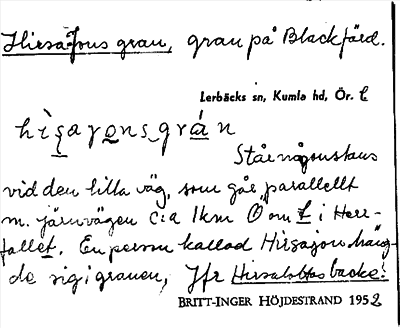 Hirsajons gran, gran på Blackfärd.
Lerbäcks sn, Kumla hd, Ör. l
hìs̲ayo̲ns grá̲n
Står någonstans
vid den lilla väg, som går parallellt
m. järnvägen c:a 1km Ö om t i Herr-
fallet. En person kallad Hirsajon häng-
de sig i granen, Jfr Hirsalottas backe!
BRITT-INGER HÖJDESTRAND 1952